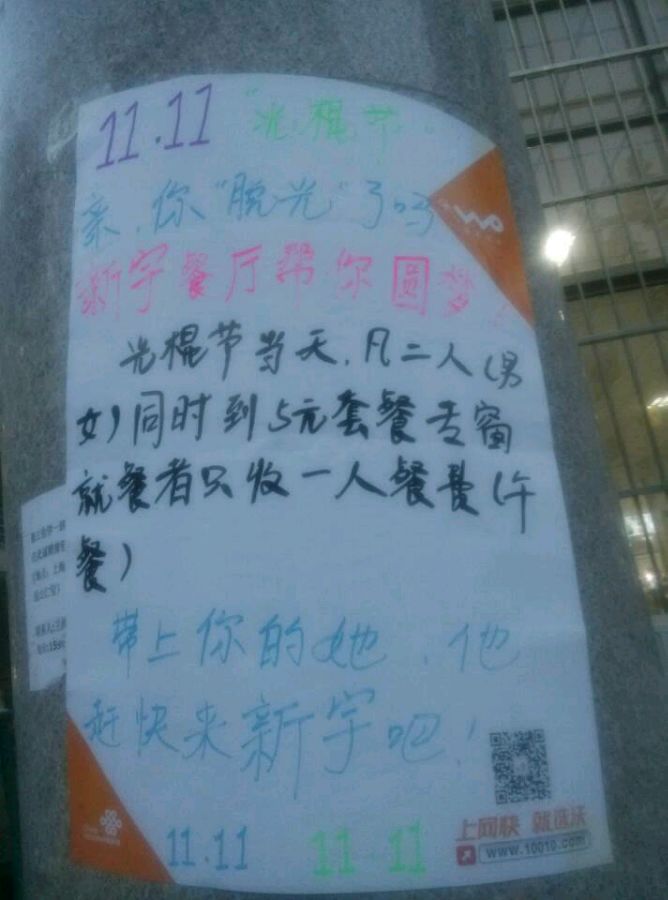 11.11 "光棍节"
亲,你"脱光"了吗
新宇餐厅帮你圆梦!
光棍节当天,凡二人(男
女)同时到5元套餐专窗
就餐者只收一人餐费(午
餐)
带上你的她、他
赶快来新宇吧!
11.11 11.11
上网快 就选沃
www.10010.com